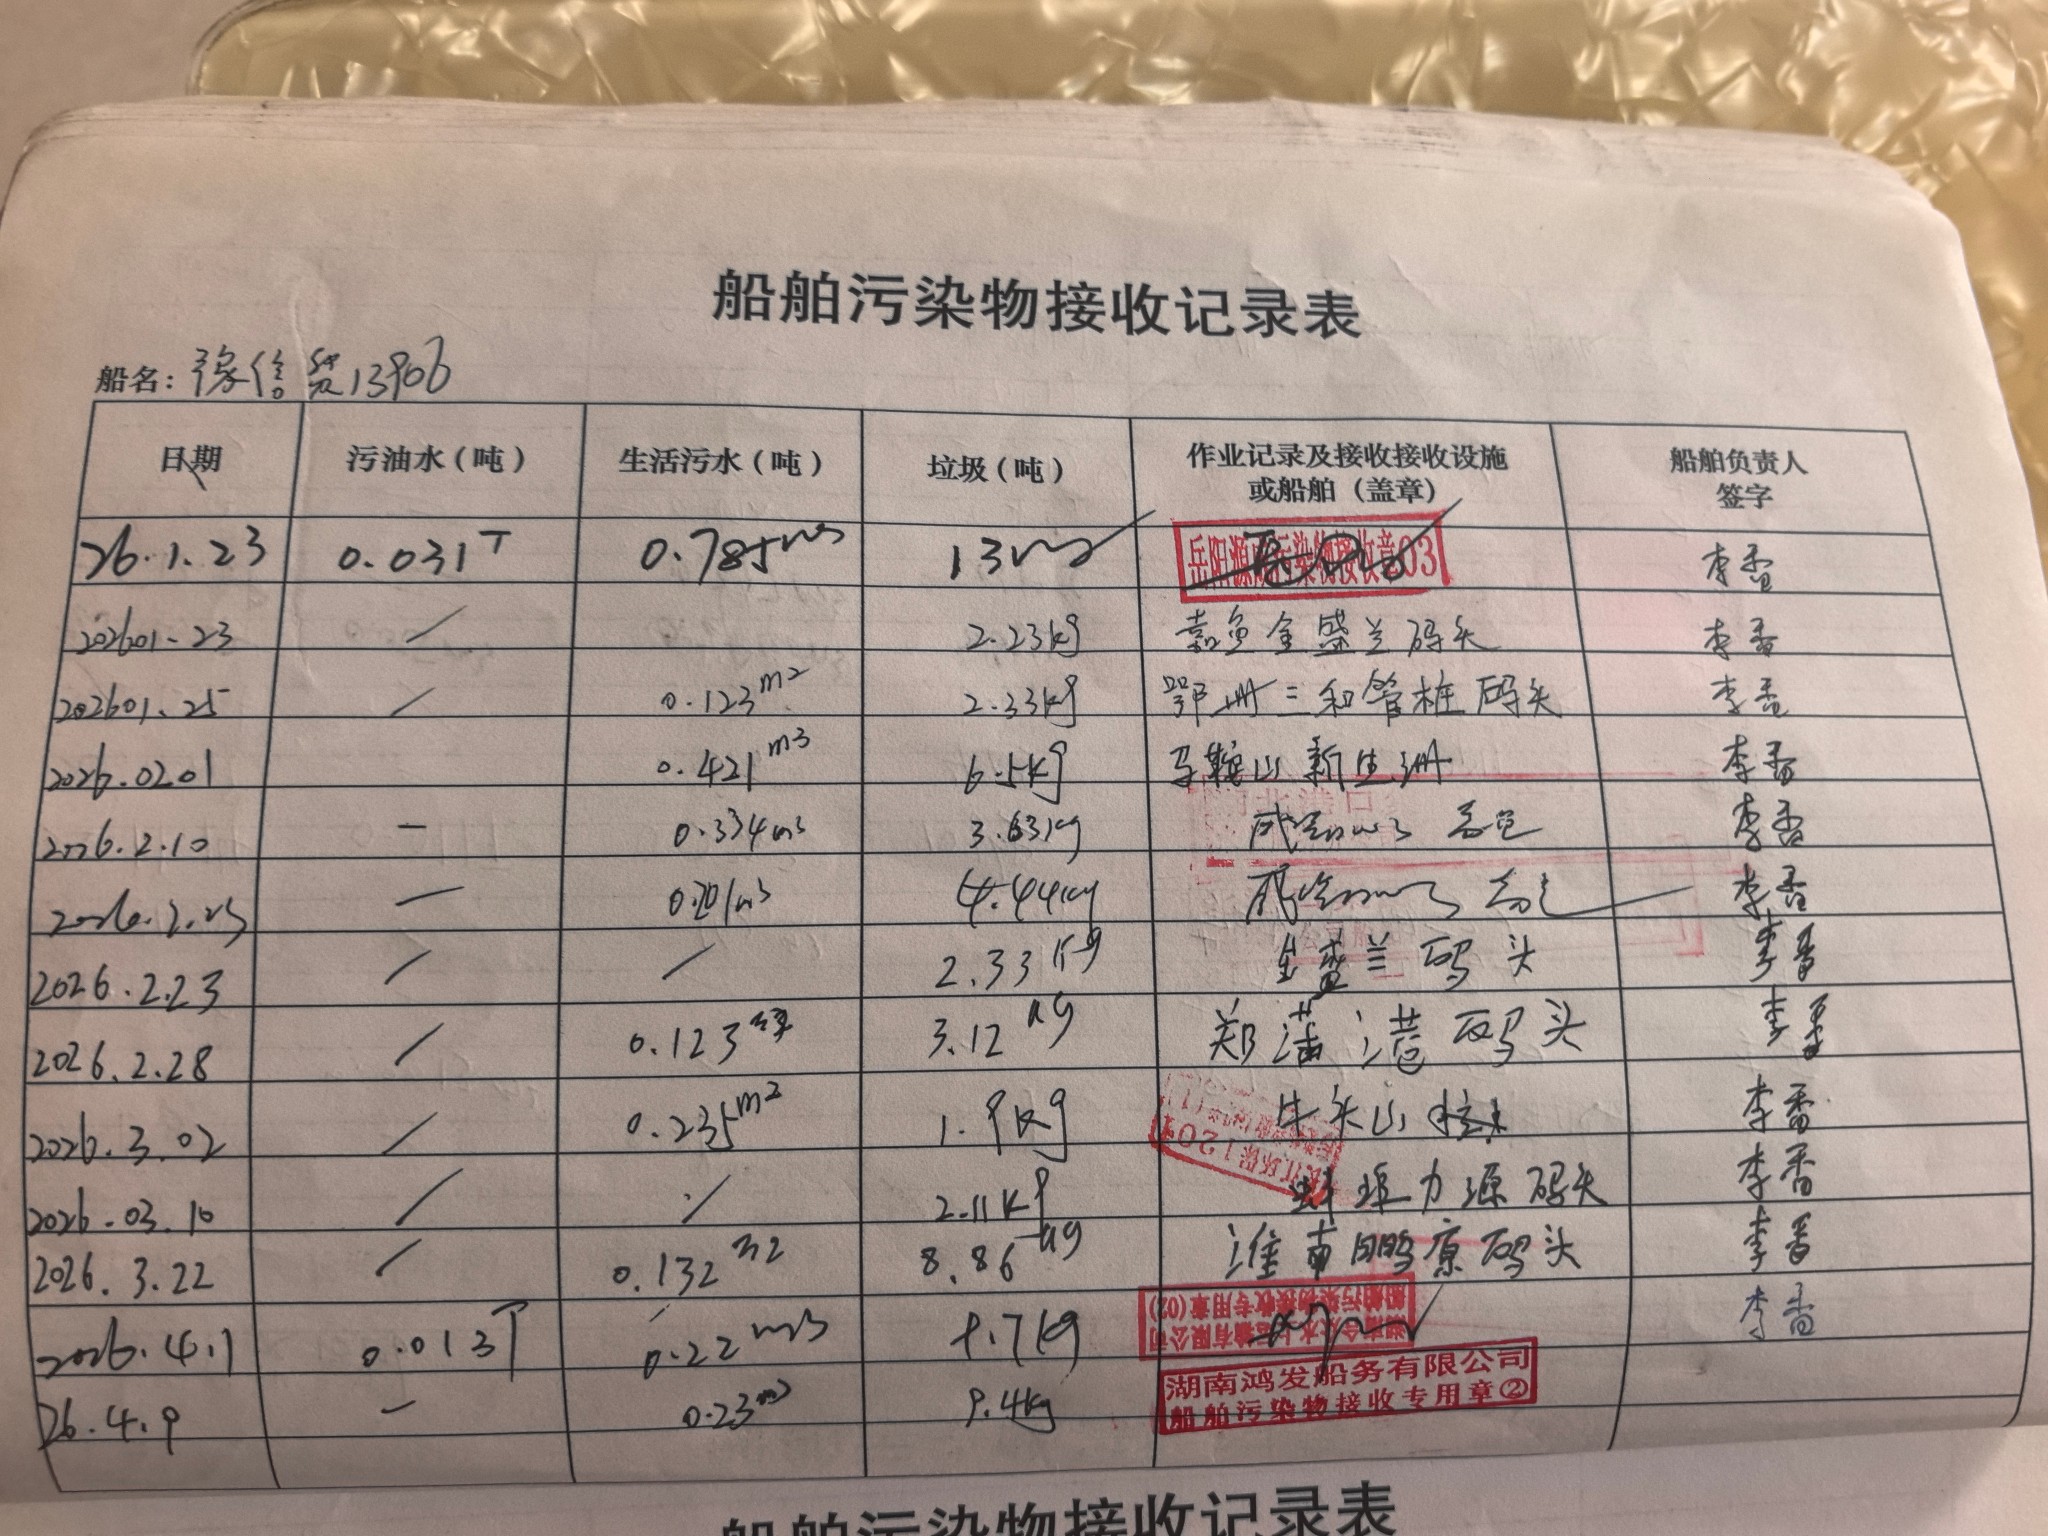 船舶污染物接收记录表
船名：豫信货13906
日期 污油水（吨） 生活污水（吨） 垃圾（吨） 作业记录及接收接收设施或船舶（盖章） 船舶负责人签字
26.1.23 0.031T 0.785m3 13 岳阳源 污染物接收章03 李香
202601.23 / 2.23kg 嘉鱼金盛兰码头 李香
202601.25 / 0.123m2 2.33kg 鄂州三和管桩码头 李香
2026.0201 0.421m3 6.5kg 马鞍山新生洲 李香
2026.2.10 - 0.334m3 3.63kg 李香
2026.2. — 0.201m3 4.44kg 李香
2026.2.23 / / 2.33kg 金盛兰码头 李香
2026.2.28 / 0.123 3.12kg 郑蒲港码头 李香
2026.3.02 / 0.235m2 1.9kg 牛头山 李香
2026.03.10 / / 2.11kg 蚌埠力源码头 李香
2026.3.22 / 0.132m2 8.86kg 淮南 码头 李香
2026.4.1 0.013T 0.22m3 9.7kg 船舶污染物接收专用章(02) 李香
26.4.9 - 0.23m3 9.4kg 湖南鸿发船务有限公司
船舶污染物接收专用章②
船舶污染物接收记录表